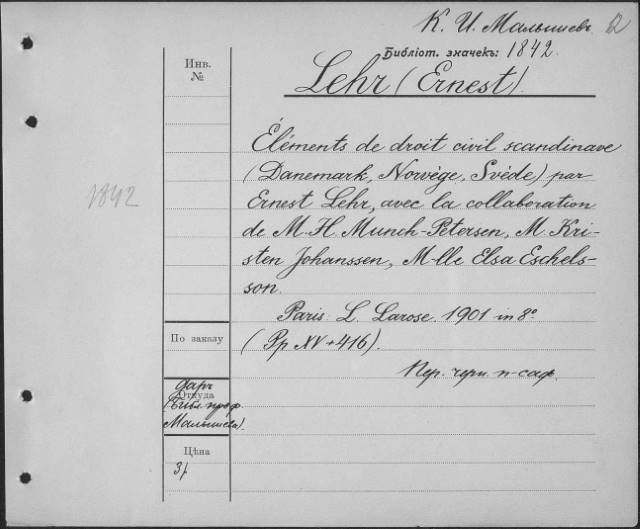 К. И. Малышевъ
Библіот. значекъ: 1842.
Инв.
№
Lehr (Ernest).
Éléments de droit civil scandinave
(Danemark, Norvège, Svéde) par
Ernest Lehr, avec la collaboration
1842
de M. H. Munch-Petersen, M. Kri-
sten Johanssen, M-lle Elsa Eschels-
son.
Paris. L. Larose. 1901 in 8°
По заказу
(Pp XV+416).
Пер. черн. п-саф.
Даръ
Откуда
(Библ. проф.
Малышева).
Цѣна
3р